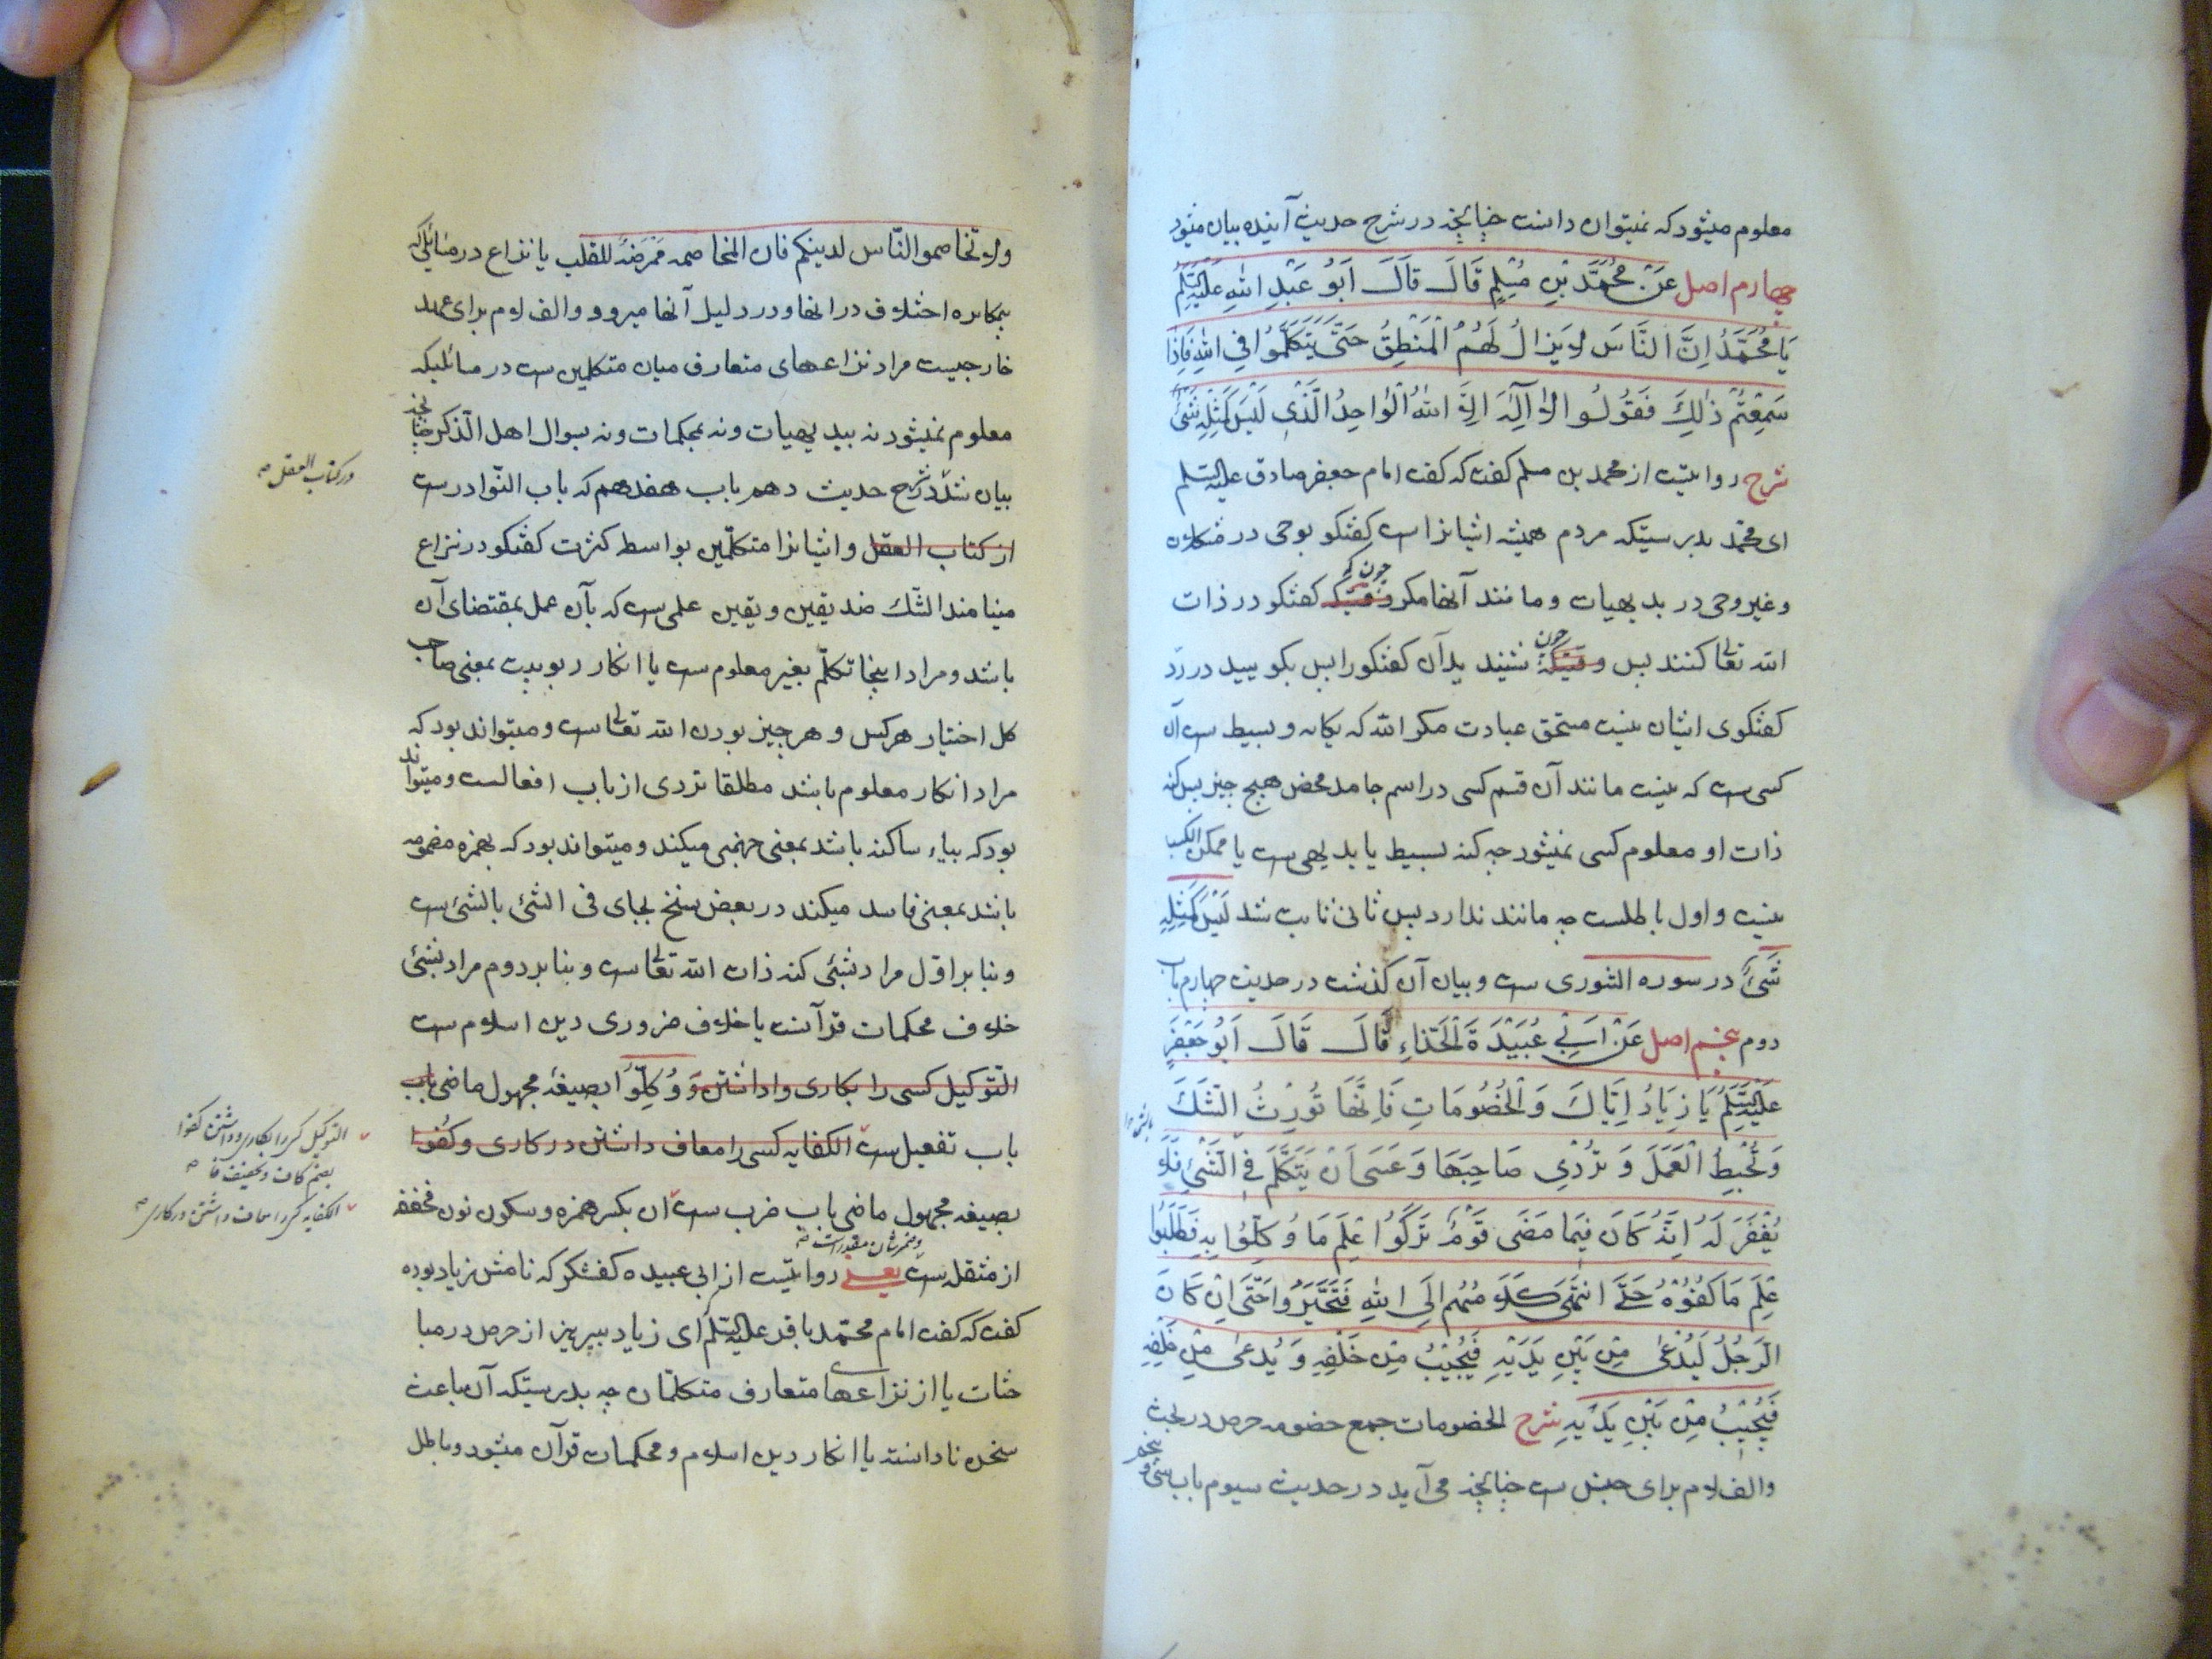 معلوم میشود که نمیتوان دانست چنانچه در شرح حدیث آینده بیان میشود
چهارم اصل عَنْ مُحَمَّدِ بْنِ مُسْلِمٍ قَالَ قَالَ اَبُو عَبْدِ اللهِ عَلَیْهِ السَّلَمُ
یَا مُحَمَّدُ اِنَّ النَّاسَ لا یَزَالُ لَهُمُ الْمَنْطِقُ حَتّی یَتَکَلَّمُوا فِی اللهِ فَاِذَا
سَمِعْتُمْ ذٰلِکَ فَقُولُوا لا اِلٰهَ اِلاَّ اللهُ الْوٰاحِدُ الَّذِی لَیْسَ کَمِثْلِهِ شَئٌ
شرح روایتست از محمد بن مسلم گفت که گفت امام جعفر صادق علیه السلم
ای محمّد بدرستیکه مردم همیشه ایشانراست گفتگو بوحی در مشکلات
و غیر وحی در بدیهیات و مانند آنها مگر وقتیکه چون که گفتگو در ذات
الله تعالی کنند پس وقتیکه چون شنیدید آن گفتگو را پس بگویید در ردّ
گفتگوی ایشان نیست مستحق عبادت مگر الله که یگانه و بسیط ست آن
کسی ست که نیست مانند آن قسم کسی در اسم جامد محض هیچ چیز پس کنه
ذات او معلوم کسی نمیشود چه کنه بسیط یا بدیهی ست یا ممکن الکسب
نیست و اول باطلست چه مانند ندارد پس ثانی ثابت شد لَیْسَ کَمِثْلِهِ
شَئٌ در سوره الشوری ست و بیان آن گذشت در حدیث چهارم باب
دوم پنجم اصل عَنْ اَبِی عُبَیْدَةَ الْحَذّاءِ قَالَ قَالَ اَبُو جَعْفَرٍ
عَلَیْهِ السَّلَمُ یَا زِیَادُ اِیَّاکَ وَ الْخُصُومَاتِ فَاِنَّهَا تُورِثُ الشَّکَ
وَ تُحْبِطُ الْعَمَلَ وَ تُرْدِی صَاحِبَهَا وَ عَسَی اَنْ یَتَکَلَّمَ فِی الشَّئِ فَلا
یُغْفَرَ لَهُ اِنَّهُ کَانَ فِیمَا مَضَی قَوْمٌ تَرَکُوا عِلْمَ مَا وُکِلُّوا بِهِ فَطَلَبُوا
عِلْمَ مَا کُفُوْهُ حَتّی انْتَهَی کَلامُهُم اِلَی اللهِ فَتَحَیَّرُوا حَتّی اِنْ کَانَ
الرَّجُلُ لَیُدْعٰی مِنْ بَیْنِ یَدَیْهِ فَیُجِیْبُ مِنْ خَلْفِهِ وَ یُدْعٰی مِنْ خَلْفِهِ
فَیُجِیْبُ مِنْ بَیْنِ یَدَیْهِ شرح الخصومات جمع خصومه حرص در بحث
والف لام برای جنس ست چنانچه می آید در حدیث سیوم باب سی و پنجم
ولا تخاصموا النّاس لدینکم فان المخاصمه ممرضة للقلب یا نزاع در مسائلی که
بمکابره اختلاف در انها و در دلیل آنها میرود و الف لام برای عهد
خارجیست مراد نزاعهای متعارف میان متکلمین ست در مسائلیکه
معلوم نمیشود نه ببدیهیات و نه بمحکمات و نه بسوال اهل الذکر چنانچه
بیان شد در شرح حدیث دهم باب هفدهم که باب النّوادرست
در کتاب العقل
از کتاب العقل و ایشانرا متکلّمین بواسط کثرت گفتگو در نزاع
مینامند الشّک ضد یقین و یقین علمی ست که بآن عمل بمقتضای آن
باشد و مراد اینجا تکلّم بغیر معلوم ست یا انکار ربوبیت بمعنی صاحب
کل اختیار هر کس و هر چیز بودن الله تعالی ست و میتواند بود که
مراد انکار معلوم باشد مطلقا تردی از باب افعالست و میتواند
بود که بیاء ساکنه باشد بمعنی جهنمی میکند و میتواند بود که بهمزه مضمومه
باشد بمعنی فاسد میکند در بعض نسخ بجای فی الشئ بالشئ ست
و بنا بر اوّل مراد بشئی کنه ذات الله تعالی ست و بنا بر دوم مراد بشئی
خلاف محکمات قرآنست یا خلاف ضروری دین اسلام ست
التّوکیل کسی را بکاری وا داشتن وَ وُکِلّوُا بصیغهٔ مجهول ماضی باب
باب تفعیل ست الکفایه کسی را معاف داشتن در کاری و کُفوا
التوکیل کسی را بکاری وا داشتن کفوا
بضم کاف و تخفیف فا
الکفایه کسی را معاف داشتن در کاری
بصیغه مجهول ماضی باب ضرب ست ان بکسر همزه و سکون نون مخففه
و ضمیر شان مقدرست
از مثقله ست یعنی روایتست از ابی عبیده کفشگر که نامش زیاد بوده
گفت که گفت امام محمّد باقر علیه السلم ای زیاد بپرهیز از حرص در مبا
حثات یا از نزاعهای متعارف متکلمان چه بدرستیکه آن باعث
سخن نادانسته یا انکار دین اسلام و محکمات قرآن میشود و باطل